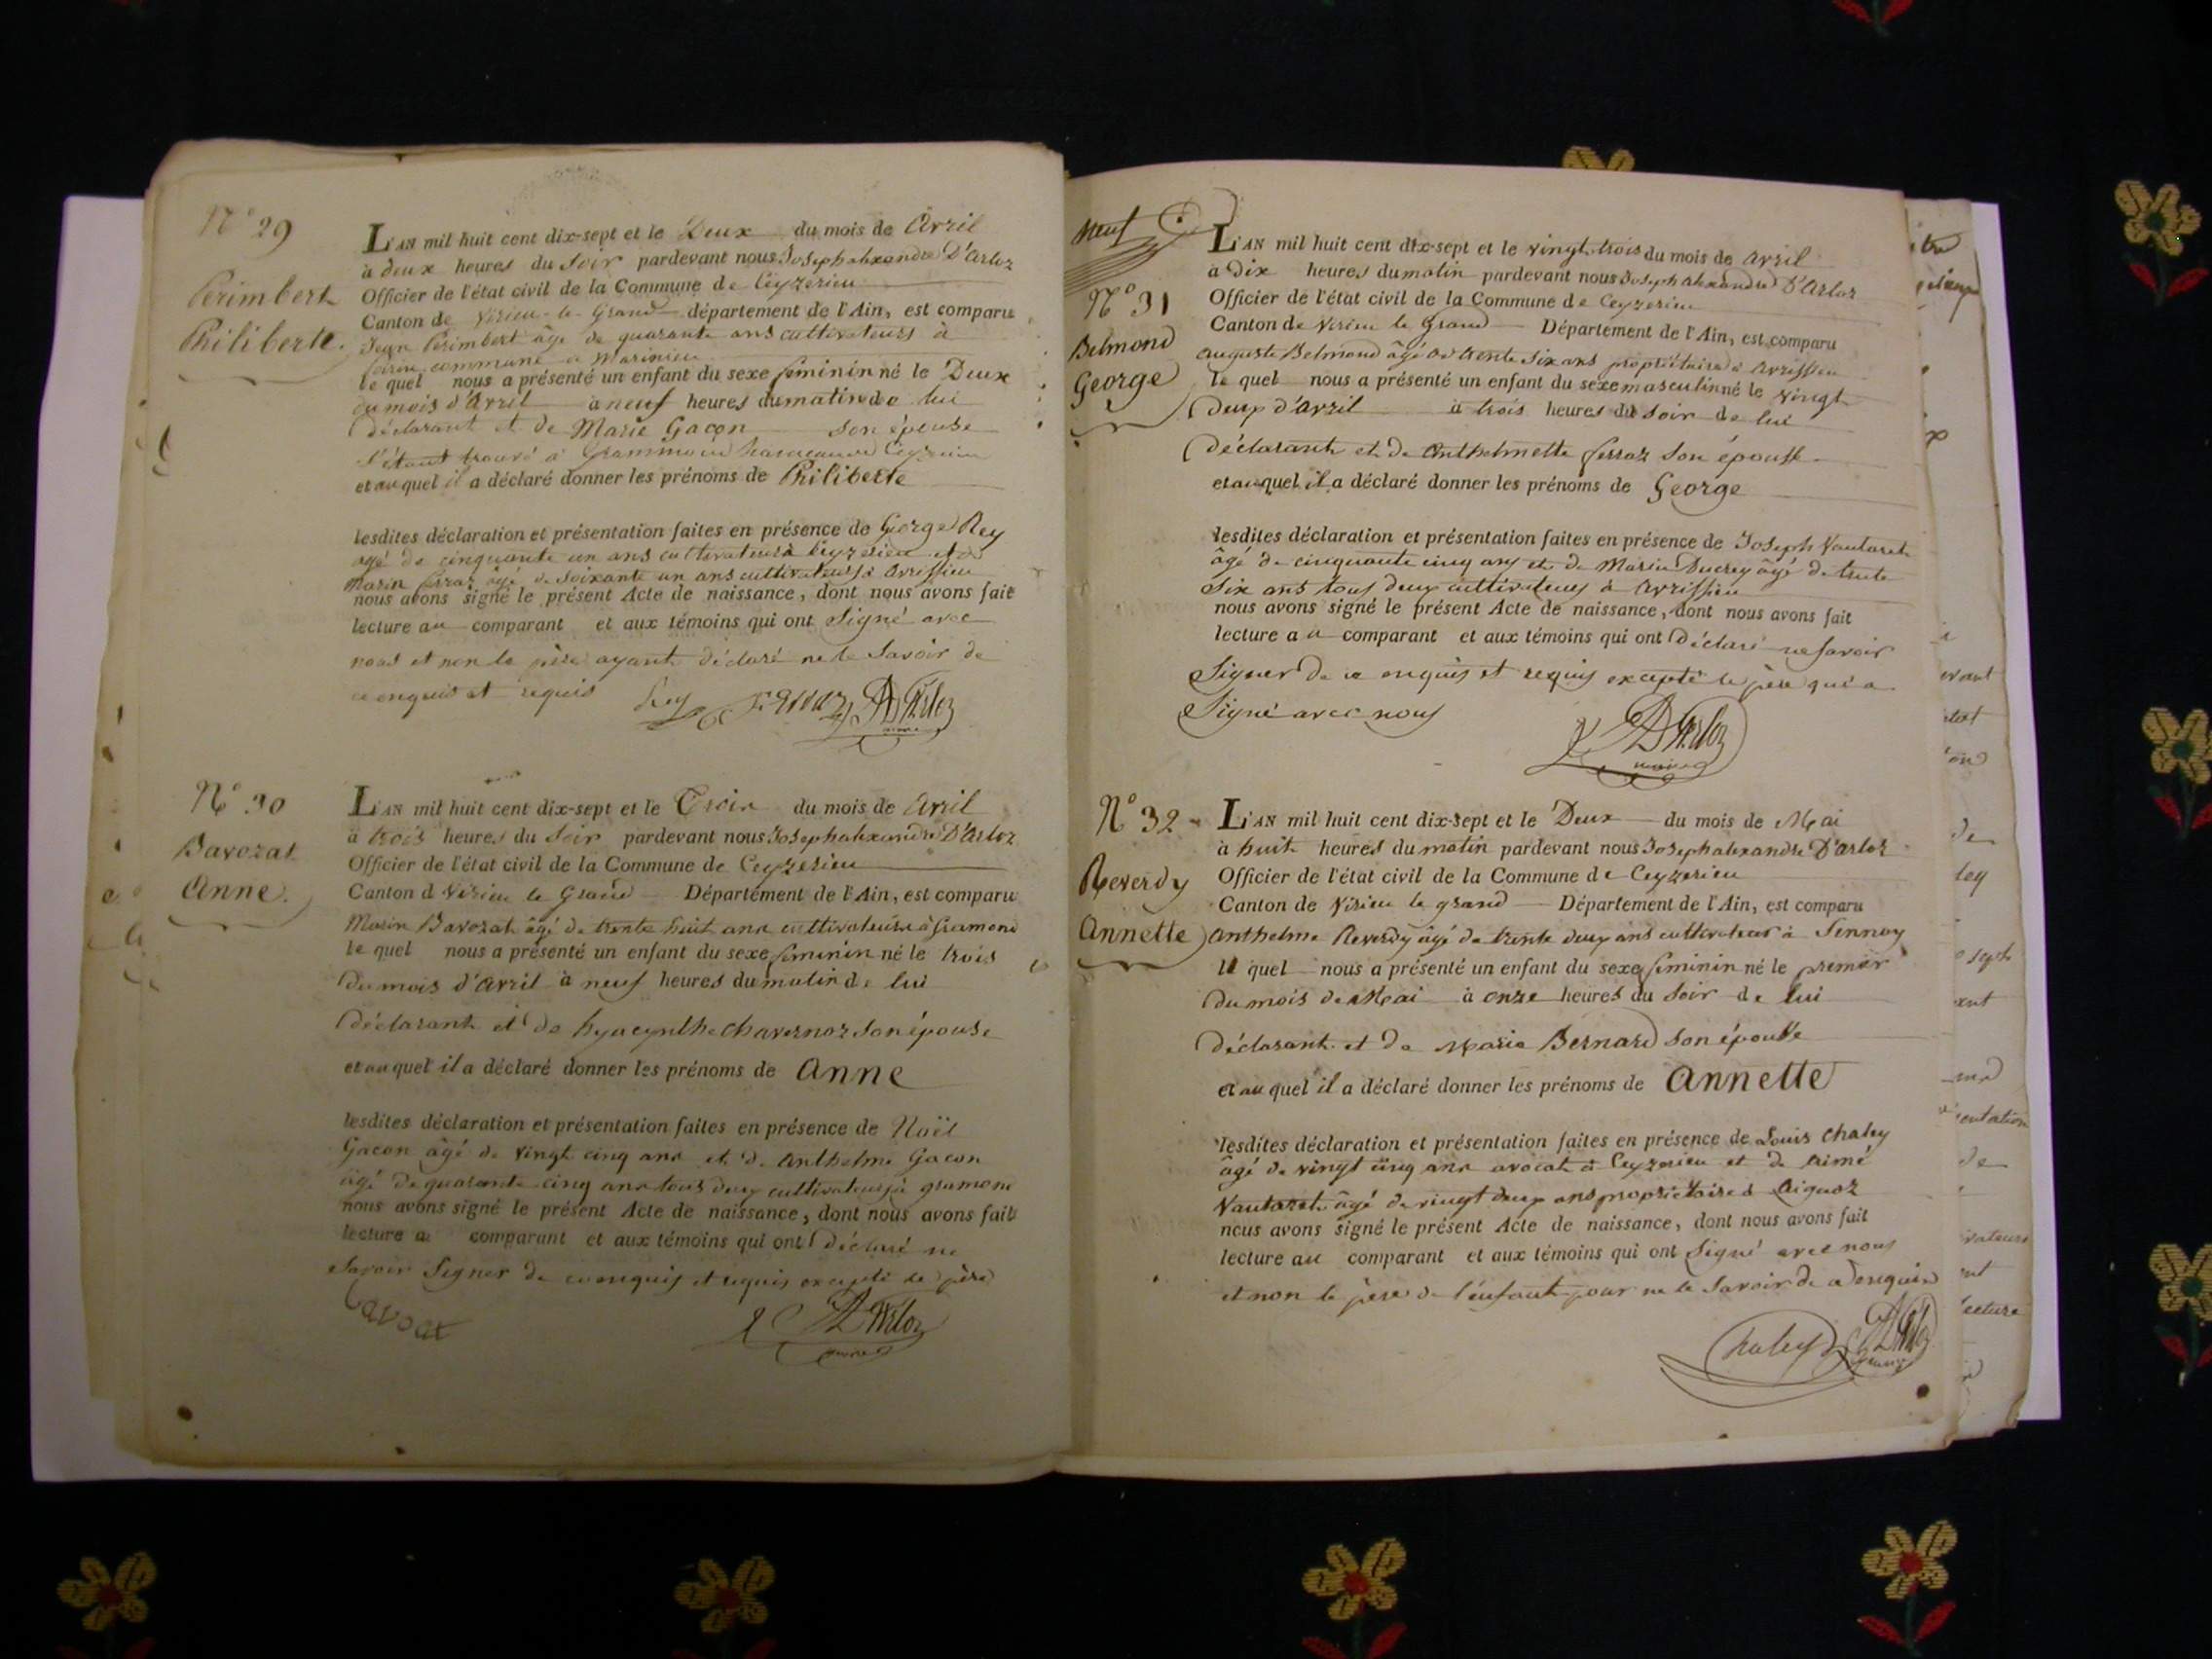 N° 29
Perimbert
Philiberte.
L'AN mil huit cent dix-sept et le Deux du mois de Avril
à deux heures du Soir pardevant nous Joseph alexandre D'arloz
Officier de l'état civil de la Commune de Ceyzerieu
Canton de Virieu-le-Grand département de l'Ain, est comparu
Jean Perimbert âgé de quarante ans cultivateurs à
commune de Marinieu
le quel nous a présenté un enfant du sexe feminin né le Deux
du mois d'Avril à neuf heures du matin de lui
déclarant et de Marie Gacon son épouse
s'étant trouvé à Grammond hameau de Ceyzerieu
et au quel il a déclaré donner les prénoms de Philiberte
lesdites déclaration et présentation faites en présence de Gorge Rey
agé de cinquante un ans cultivateur à Ceyzerieu et de
Marin ferraz âgé de Soixante un ans cultivateurs à avrissieu
nous avons signé le présent Acte de naissance, dont nous avons fait
lecture au comparant et aux témoins qui ont Signé avec
nous et non le père ayant déclaré ne le Savoir de
ce enquis et requis Rey
N° 30
Bavozat
Anne.
L'AN mil huit cent dix-sept et le Trois du mois de Avril
à trois heures du Soir pardevant nous Joseph alexandre D'Arloz
Officier de l'état civil de la Commune de Ceyzerieu
Canton d Virieu le Grand Département de l'Ain, est comparu
Marin Bavozat âgé de trente huit ans cultivateurs à Gramond
le quel nous a présenté un enfant du sexe feminin né le trois
du mois d'Avril à neuf heures du matin de lui
déclarant et de hyacynthe Chavernoz son épouse
et au quel il a déclaré donner les prénoms de Anne
lesdites déclaration et présentation faites en présence de Noël
Gacon âgé de vingt cinq ans et de anthelme Gacon
âgé de quarante cinq ans tous deux cultivateurs à gramond
nous avons signé le présent Acte de naissance, dont nous avons fait
lecture au comparant et aux témoins qui ont déclaré ne
Savoir Signer de ce enquis et requis excepté le père
neuf
N° 31
Belmond
George
L'AN mil huit cent dix-sept et le vingt-trois du mois de avril
à Dix heures du matin pardevant nous Joseph alexandre D'Arloz
Officier de l'état civil de la Commune de Ceyzerieu
Canton de Virieu le Grand Département de l'Ain, est comparu
auguste Belmond âgé de trente Six ans propriétaire à avrissieu
le quel nous a présenté un enfant du sexe masculin né le vingt
deux d'avril à trois heures du Soir de lui
déclarant et de Anthelmette ferraz Son épouse
et au quel il a déclaré donner les prénoms de George
lesdites déclaration et présentation faites en présence de Joseph Vautaret
âgé de cinquante cinq ans et de Marin Ducrey âgé de trente
Six ans tous deux cultivateurs à avrissieu
nous avons signé le présent Acte de naissance, dont nous avons fait
lecture au comparant et aux témoins qui ont déclaré ne Savoir
Signer de ce enquis et requis excepté le père qui a
Signé avec nous
N° 32
Reverdy
Annette
L'AN mil huit cent dix-sept et le Deux du mois de Mai
à huit heures du matin pardevant nous Joseph alexandre D'arloz
Officier de l'état civil de la Commune de Ceyzerieu
Canton de Virieu le grand Département de l'Ain, est comparu
anthelme Reverdy âgé de trente deux ans cultivateur à
le quel nous a présenté un enfant du sexe feminin né le premier
du mois de Mai à onze heures du Soir de lui
déclarant et de Marie Bernard son épouse
et au quel il a déclaré donner les prénoms de Annette
lesdites déclaration et présentation faites en présence de Louis Chaley
âgé de vingt cinq ans avocat à Ceyzerieu et de aimé
Vautaret âgé de vingt deux ans propriétaire à aignoz
nous avons signé le présent Acte de naissance, dont nous avons fait
lecture au comparant et aux témoins qui ont Signé avec nous
et non le père de l'enfant pour ne le Savoir de ce enquis
Chaley